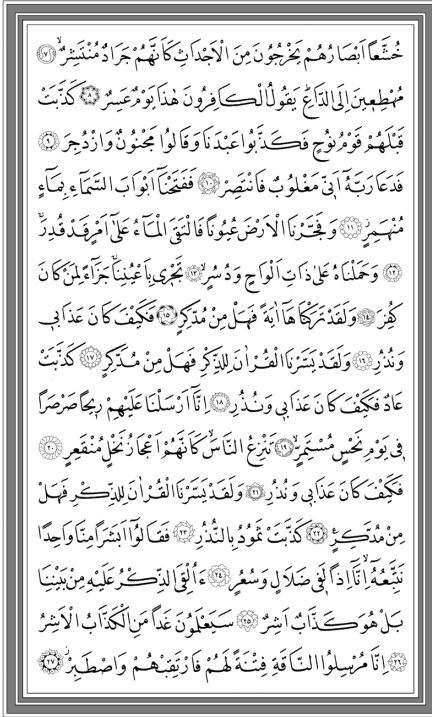 خُشَّعاً اَبْصَارُهُمْ يَخْرُجُونَ مِنَ الْاَجْدَاثِ كَاَنَّهُمْ جَرَادٌ مُنْتَشِرٌۙ ﴿٧﴾
مُهْطِعٖينَ اِلَى الدَّاعِؕ يَقُولُ الْكَافِرُونَ هٰذَا يَوْمٌ عَسِرٌ ﴿٨﴾ كَذَّبَتْ
قَبْلَهُمْ قَوْمُ نُوحٍ فَكَذَّبُوا عَبْدَنَا وَقَالُوا مَجْنُونٌ وَازْدُجِرَ ﴿٩﴾
فَدَعَا رَبَّهُٓ اَنّٖي مَغْلُوبٌ فَانْتَصِرْ ﴿١٠﴾ فَفَتَحْنَٓا اَبْوَابَ السَّمَٓاءِ بِمَٓاءٍ
مُنْهَمِرٍؗ ﴿١١﴾ وَفَجَّرْنَا الْاَرْضَ عُيُوناً فَالْتَقَى الْمَٓاءُ عَلٰٓى اَمْرٍ قَدْ قُدِرَۚ
﴿١٢﴾ وَحَمَلْنَاهُ عَلٰى ذَاتِ اَلْوَاحٍ وَدُسُرٍۙ ﴿١٣﴾ تَجْرٖي بِاَعْيُنِنَاۚ جَزَٓاءً لِمَنْ كَانَ
كُفِرَ ﴿١٤﴾ وَلَقَدْ تَرَكْنَاهَٓا اٰيَةً فَهَلْ مِنْ مُدَّكِرٍ ﴿١٥﴾ فَكَيْفَ كَانَ عَذَابٖي
وَنُذُرِ ﴿١٦﴾ وَلَقَدْ يَسَّرْنَا الْقُرْاٰنَ لِلذِّكْرِ فَهَلْ مِنْ مُدَّكِرٍ ﴿١٧﴾ كَذَّبَتْ
عَادٌ فَكَيْفَ كَانَ عَذَابٖي وَنُذُرِ ﴿١٨﴾ اِنَّٓا اَرْسَلْنَا عَلَيْهِمْ رٖيحاً صَرْصَراً
فٖي يَوْمِ نَحْسٍ مُسْتَمِرٍّۙ ﴿١٩﴾ تَنْزِعُ النَّاسَۙ كَاَنَّهُمْ اَعْجَازُ نَخْلٍ مُنْقَعِرٍ ﴿٢٠﴾
فَكَيْفَ كَانَ عَذَابٖي وَنُذُرِ ﴿٢١﴾ وَلَقَدْ يَسَّرْنَا الْقُرْاٰنَ لِلذِّكْرِ فَهَلْ
مِنْ مُدَّكِرٍ ﴿٢٢﴾ كَذَّبَتْ ثَمُودُ بِالنُّذُرِ ﴿٢٣﴾ فَقَالُٓوا اَبَشَراً مِنَّا وَاحِداً
نَتَّبِعُهُٓۙ اِنَّٓا اِذاً لَفٖي ضَلَالٍ وَسُعُرٍ ﴿٢٤﴾ ءَاُلْقِيَ الذِّكْرُ عَلَيْهِ مِنْ بَيْنِنَا
بَلْ هُوَ كَذَّابٌ اَشِرٌ ﴿٢٥﴾ سَيَعْلَمُونَ غَداً مَنِ الْكَذَّابُ الْاَشِرُ
﴿٢٦﴾ اِنَّا مُرْسِلُوا النَّاقَةِ فِتْنَةً لَهُمْ فَارْتَقِبْهُمْ وَاصْطَبِرْؗ ﴿٢٧﴾